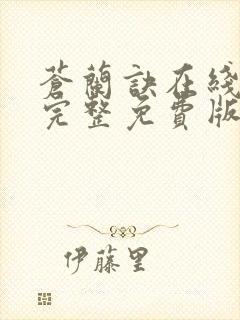 蒼蘭訣在綫
完整免費版
伊藤里